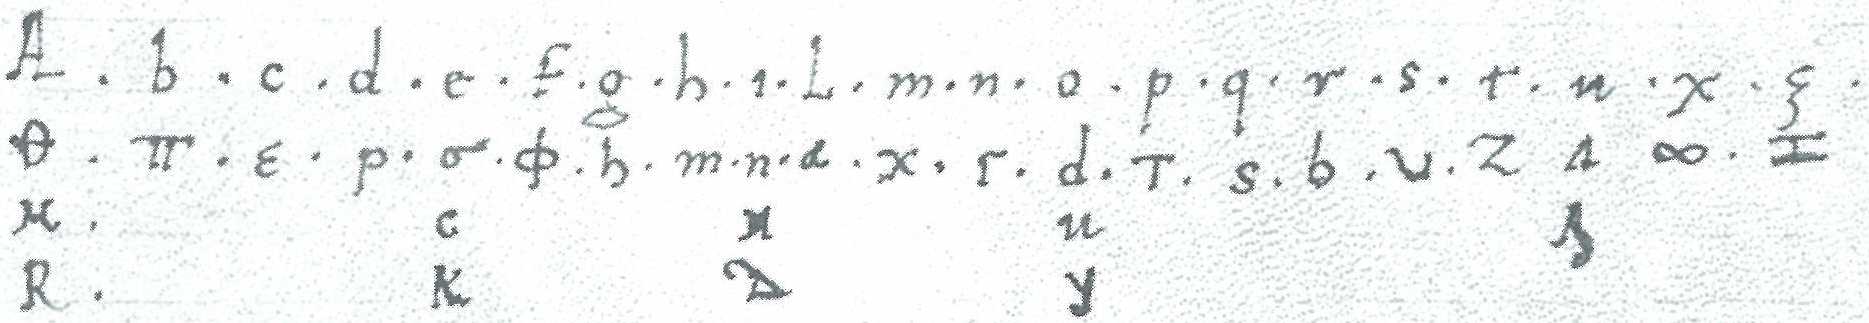 A . b . c . d . e . f . g . h . 1 . L . m . n . o . p . q . r . s . t . u . x . ξ .
θ . π . ε . p . σ . ϕ . h . m . n . a . x . r . d . T . s . b . v . Z ∞ . I
c u
R . K y